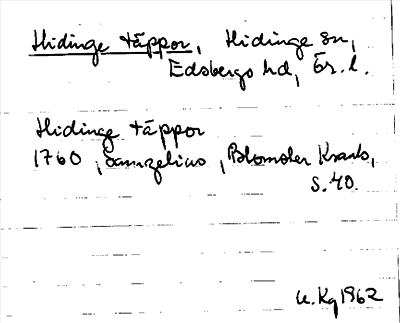 Hidinge täppor, Hidinge sn,
Edsbergs hd, Ör. l.
Hidinge täppor
1760, Samzelius, Blomster Krants,
s. 40.
u. Kg 1962